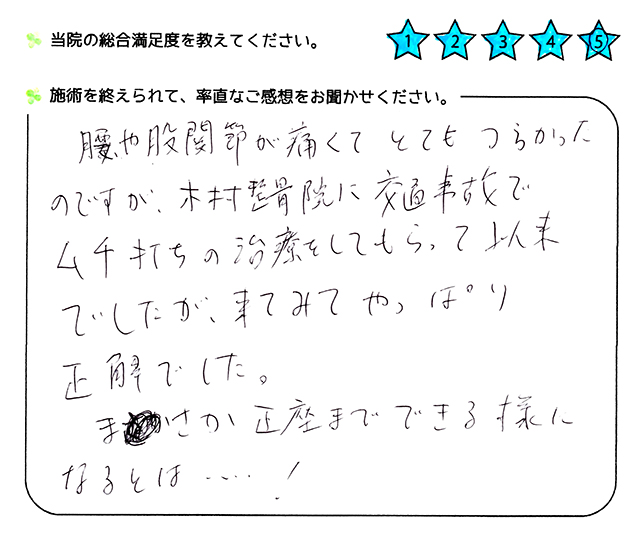 当院の総合満足度を教えてください。 1 2 3 4 5
施術を終えられて、率直なご感想をお聞かせください。
腰や股関節が痛くてとてもつらかった
のですが、木村整骨院に交通事故で
ムチ打ちの治療をしてもらって以来
でしたが、来てみてやっぱり
正解でした。
まさか正座までできる様に
なるとは……!